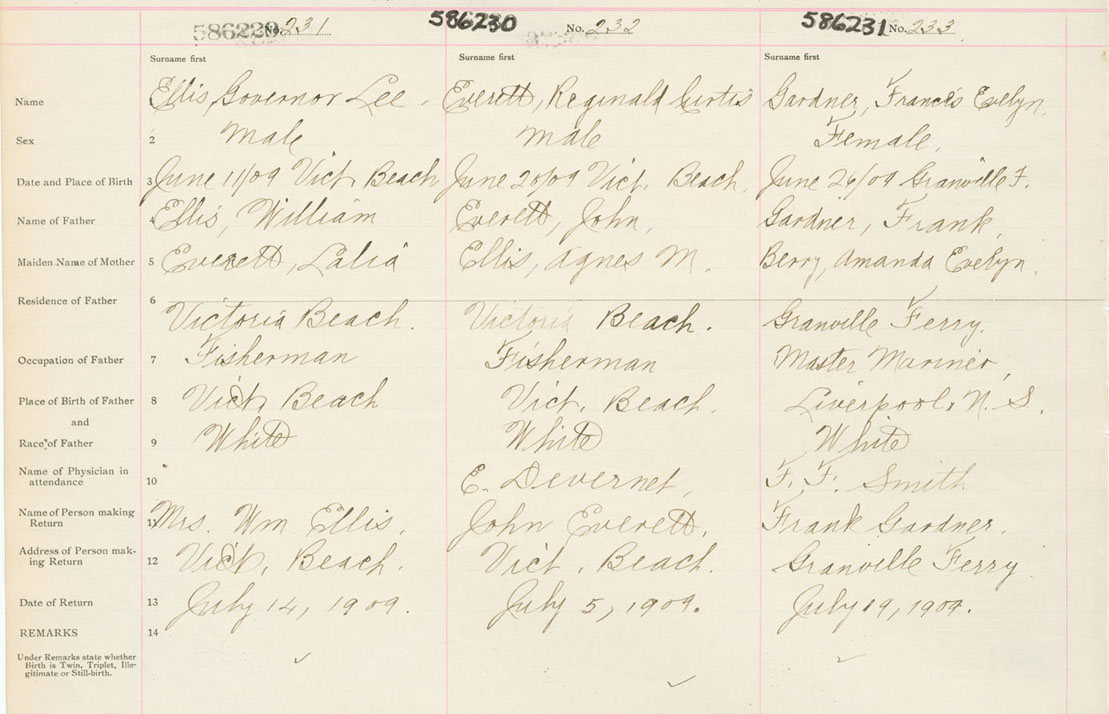 586229 No. 231 586230 No. 232 586231 No. 233
Surname first Surname first Surname first
Name Ellis, Governor Lee. Everett, Reginald Curtis Gardner, Francis Evelyn.
Sex 2 male male Female.
Date and Place of Birth 3 June 11/09 Vict. Beach June 20/09 Vict. Beach. June 26/09 Granville F.
Name of Father 4 Ellis, William Everett, John, Gardner, Frank.
Maiden Name of Mother 5 Everett, Lalia Ellis, Agnes M. Berry, Amanda Evelyn.
Residence of Father 6 Victoria Beach. Victoria Beach. Granville Ferry.
Occupation of Father 7 Fisherman Fisherman Master Mariner,
Place of Birth of Father 8 Vict. Beach Vict. Beach. Liverpool, N. S.
and
Race of Father 9 White White White
Name of Physician in
attendance 10 E. Devernet, F. F. Smith
Name of Person making
Return 11 Mrs. Wm Ellis. John Everett. Frank Gardner.
Address of Person mak-
ing Return 12 Vict. Beach. Vict. Beach. Granville Ferry.
Date of Return 13 July 14, 1909. July 5, 1909. July 19, 1909.
REMARKS 14
Under Remarks state whether
Birth is Twin, Triplet, Ille-
gitimate or Still-birth.